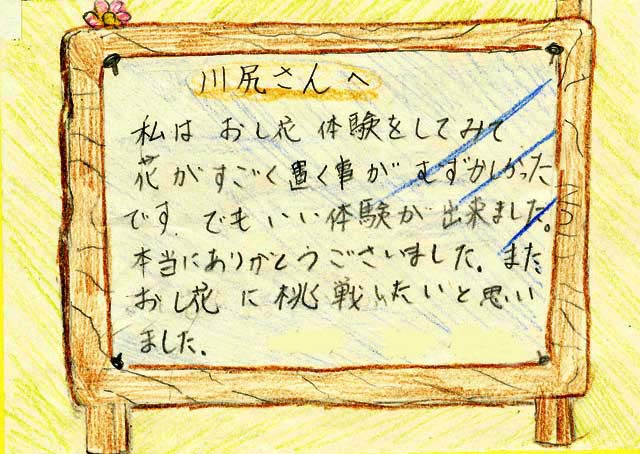 川尻さんへ
私は おし花 体験をしてみて
花がすごく置く事が むずかしかった
です。でもいい体験が出来ました。
本当にありがとうございました。また、
おし花に桃戦したいと思い
ました。